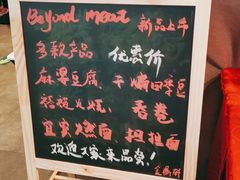 Beyond meat 新品上午
多款产品 优惠价
麻婆豆腐、干煸四季豆
香卷
宜宾燃面 担担面
欢迎大家来品赏!